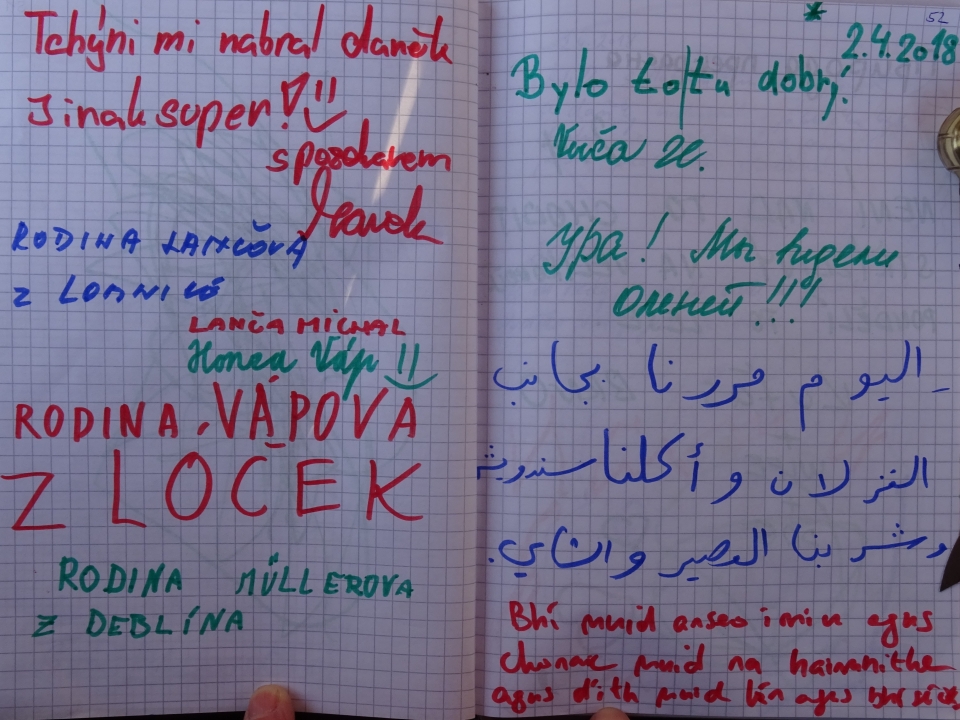 Tchýni mi nabral daněk
Jinak super!
s pozdravem
RODINA
Z LOMNICE
LANČA MICHAL
Honza Váp
RODINA VÁPOVA
Z LOČEK
RODINA MÜLLEROVA
Z DEBLÍNA
52
2.4.2018
Bylo to tu dobrý.
2C.
Ура! Мы видели
Оленей!!!
اليوم مررنا بجانب
الغزلان و أكلنا
وشربنا العصير والشاي.
Bhí muid anseo inniu agus
chonaic muid na hainmhithe
agus d'ith muid lón agus bhí